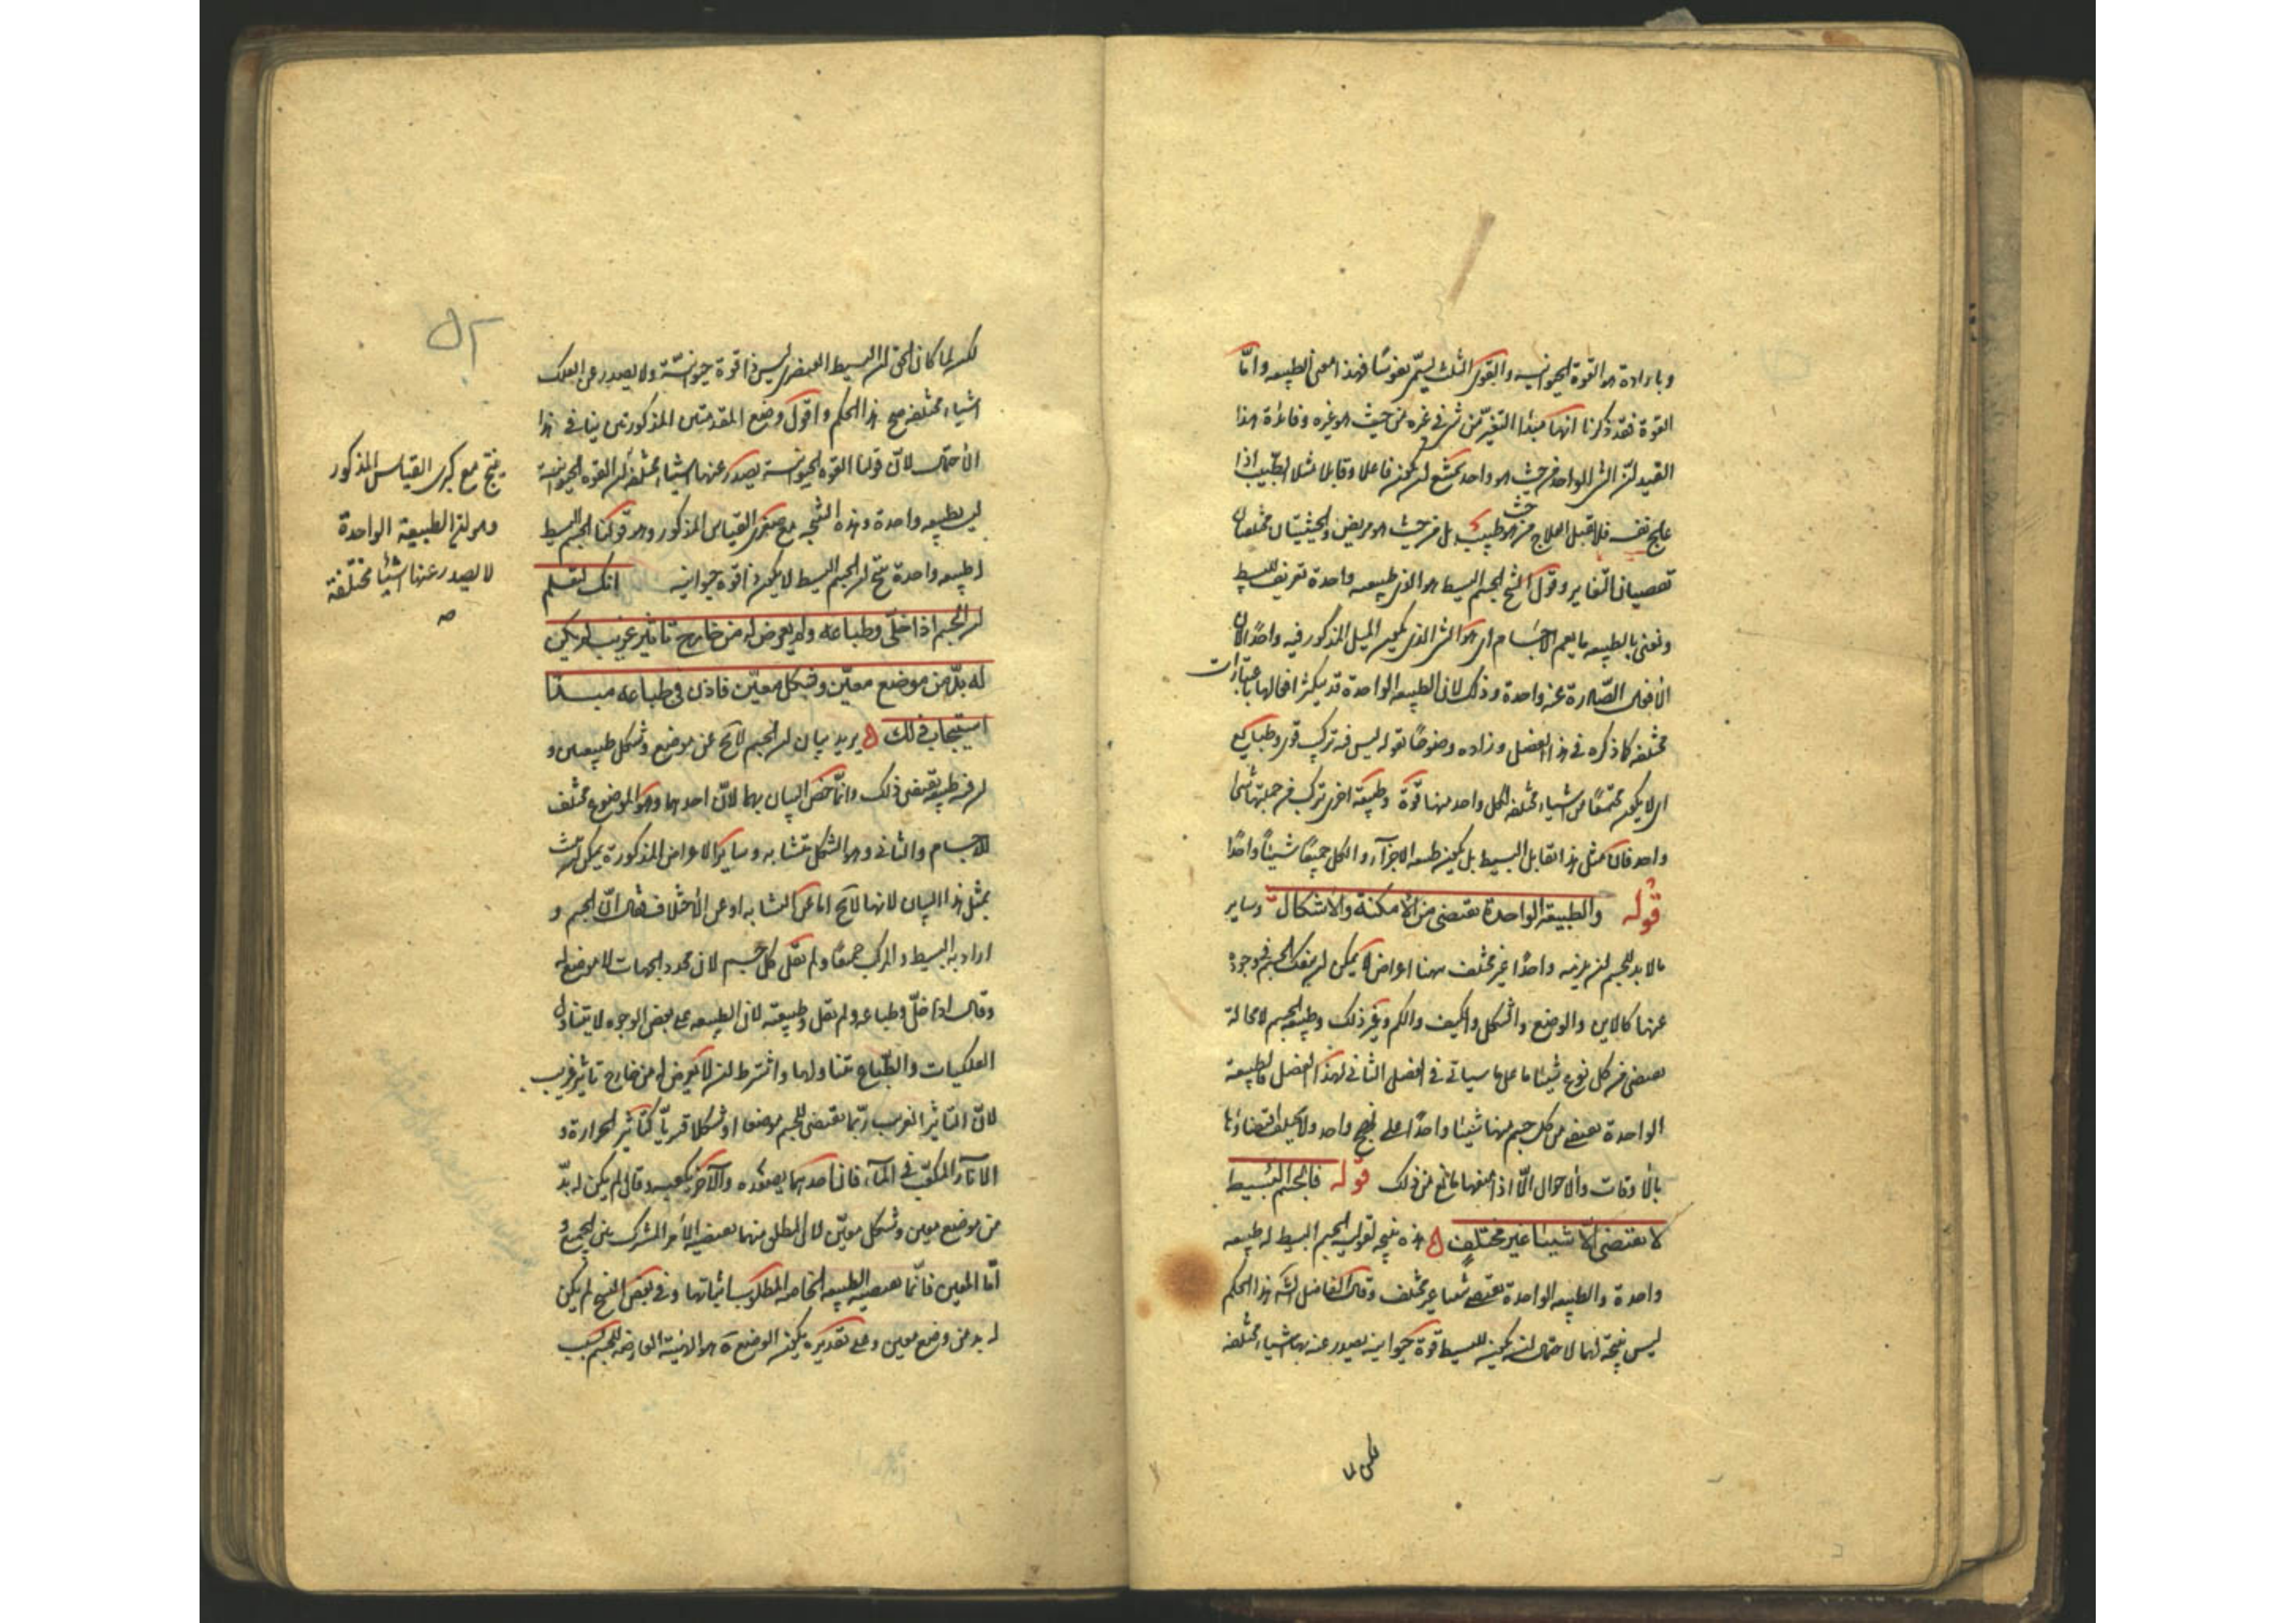 وبارادة هو القوة الحيوانية والقوى الثلث يسمى نفوسًا فهذا معنى الطبيعة وامّا
القوة فقد ذكرنا انها مبدأ التغيّر من شئ في غيره من حيث هو غيره وفائدة هذا
القيد لنّ الشئ الواحد من حيث هو واحد يمتنع لن يكون فاعلا وقابلا مثلا الطبيب اذا
عالج نفسه فلا يقبل العلاج من حيث هو طبيب بل من حيث هو مريض والحيثيتان مختلفتان
تقتضيان التغاير وقول الشيخ الجسم البسيط هو الذي طبيعته واحدة تعريف للبسيط
ونعنى بالطبيعة ما يعم الاجسام اى هو الشئ الذي يكون الميل المذكور فيه واحدًا لان
الافعال الصّادرة عنه واحدة وذلك لان الطبيعة الواحدة قد يتكثر افعالها باعتبارات
مختلفة كما ذكره في هذا الفصل وزاده وضوحًا بقوله ليس فيه تركيب قوى وطبايع
اى لا يكون مجتمعًا من اشياء مختلفة لكل واحد منها قوّة وطبيعة اخرى تركب من جملتها شئ
واحد فان مثل هذا يقابل البسيط بل يكون طبيعة الاجزآء والكل جميعًا شيئًا واحدًا
قوله والطبيعة الواحدة تقتضى من الامكنة والاشكال وساير
ما لا بد للجسم لن يلزمه واحدًا غير مختلف ههنا اعراض لا يمكن لن ينفك الجسم في وجوده
عنها كالاين والوضع والشكل والكيف والكم وغير ذلك وطبيعة الجسم لا محالة
تقتضى من كل نوع شيئا ما على ما سياتى في الفصل الثاني لهذا الفصل فالطبيعة
الواحدة تقتضى من كل جسم منها شيئا واحدًا على نهج واحد ولا يختلف اقتضاؤها
بالاوقات والاحوال الّا اذا منعها مانع من ذلك قوله فالجسم البسيط
لا يقتضى الّا شيئا غير مختلف هذه نتيجة لقوله الجسم البسيط له طبيعة
واحدة والطبيعة الواحدة تقتضى شيئا غير مختلف وقال الفاضل الشه هذا الحكم
ليس نتيجة لهما لاحتمال لن يكون للبسيط قوة حيوانية يصدر عنه بها اشياء مختلفة
لكن لما
٥٢
لكن لما كان الحق لن البسيط العنصرى ليس ذا قوة حيوانيّة ولا يصدر عن الفلك
اشياء مختلفة صح هذا الحكم واقول وضع المقدمتين المذكورتين ينافى هذا
الاحتمال لانّ قولنا القوة الحيوانية يصدر عنها اشياء مختلفة لن القوة الحيوانية
ليس بطبيعة واحدة وهذه النتيجة مع صغرى القياس المذكور وهو قولنا الجسم البسيط
له طبيعة واحدة ينتج لن الجسم البسيط لا يكون ذا قوة حيوانية انك لتعلم
لن الجسم اذا خلّى وطباعه ولم يعرض له من خارج تاثير غريب لم يكن
له بدّ من موضع معيّن وشكل معيّن فاذن فى طباعه مبدأ
استيجاب ذلك يريد بيان لن الجسم لا يخ عن موضع وشكل طبيعيين و
لن فيه طبيعة تقتضى ذلك وانّما خصّ البيان بهما لانّ احدهما وهو الموضع مختلف
الاجسام والثانى وهو الشكل متشابه وساير الاعراض المذكورة يمكن ان يثبت
بمثل هذا البيان لانها لا يخ اما عن التشابه او عن الاختلاف فقال انّ الجسم و
اراد به البسيط والمركب جميعًا ولم يقل كل جسم لان محدد الجهات لا موضع له
وقال اذا خلّى وطباعه ولم يقل وطبيعته لان الطبيعة على بعض الوجوه لا يتناول
الفلكيات والطباع يتناولها واشترط لن لا يعرض له من خارج تاثير غريب
لانّ التاثير الغريب ربّما يقتضى للجسم موضعا او شكلا قسريّا كتاثير الحرارة و
الاناء المكعّب فى المآء فان احدهما يصعّده والآخر يكعبه وقال لم يكن له بدّ
من موضع معين وشكل معيّن لان المطلق منهما يقتضيه الامر المشترك بين الجميع و
امّا المعين فانّما يقتضيه الطبيعة الخاصة المطلوب اثباتها وفى بعض النسخ لم يكن
له بد من وضع معين وعلى تقديره يكون الوضع ة هو الهيئة العارضة للجسم بسبب
ينتج مع كبرى القياس المذكور
وهو لن الطبيعة الواحدة
لا يصدر عنها اشيئا مختلفة
صه